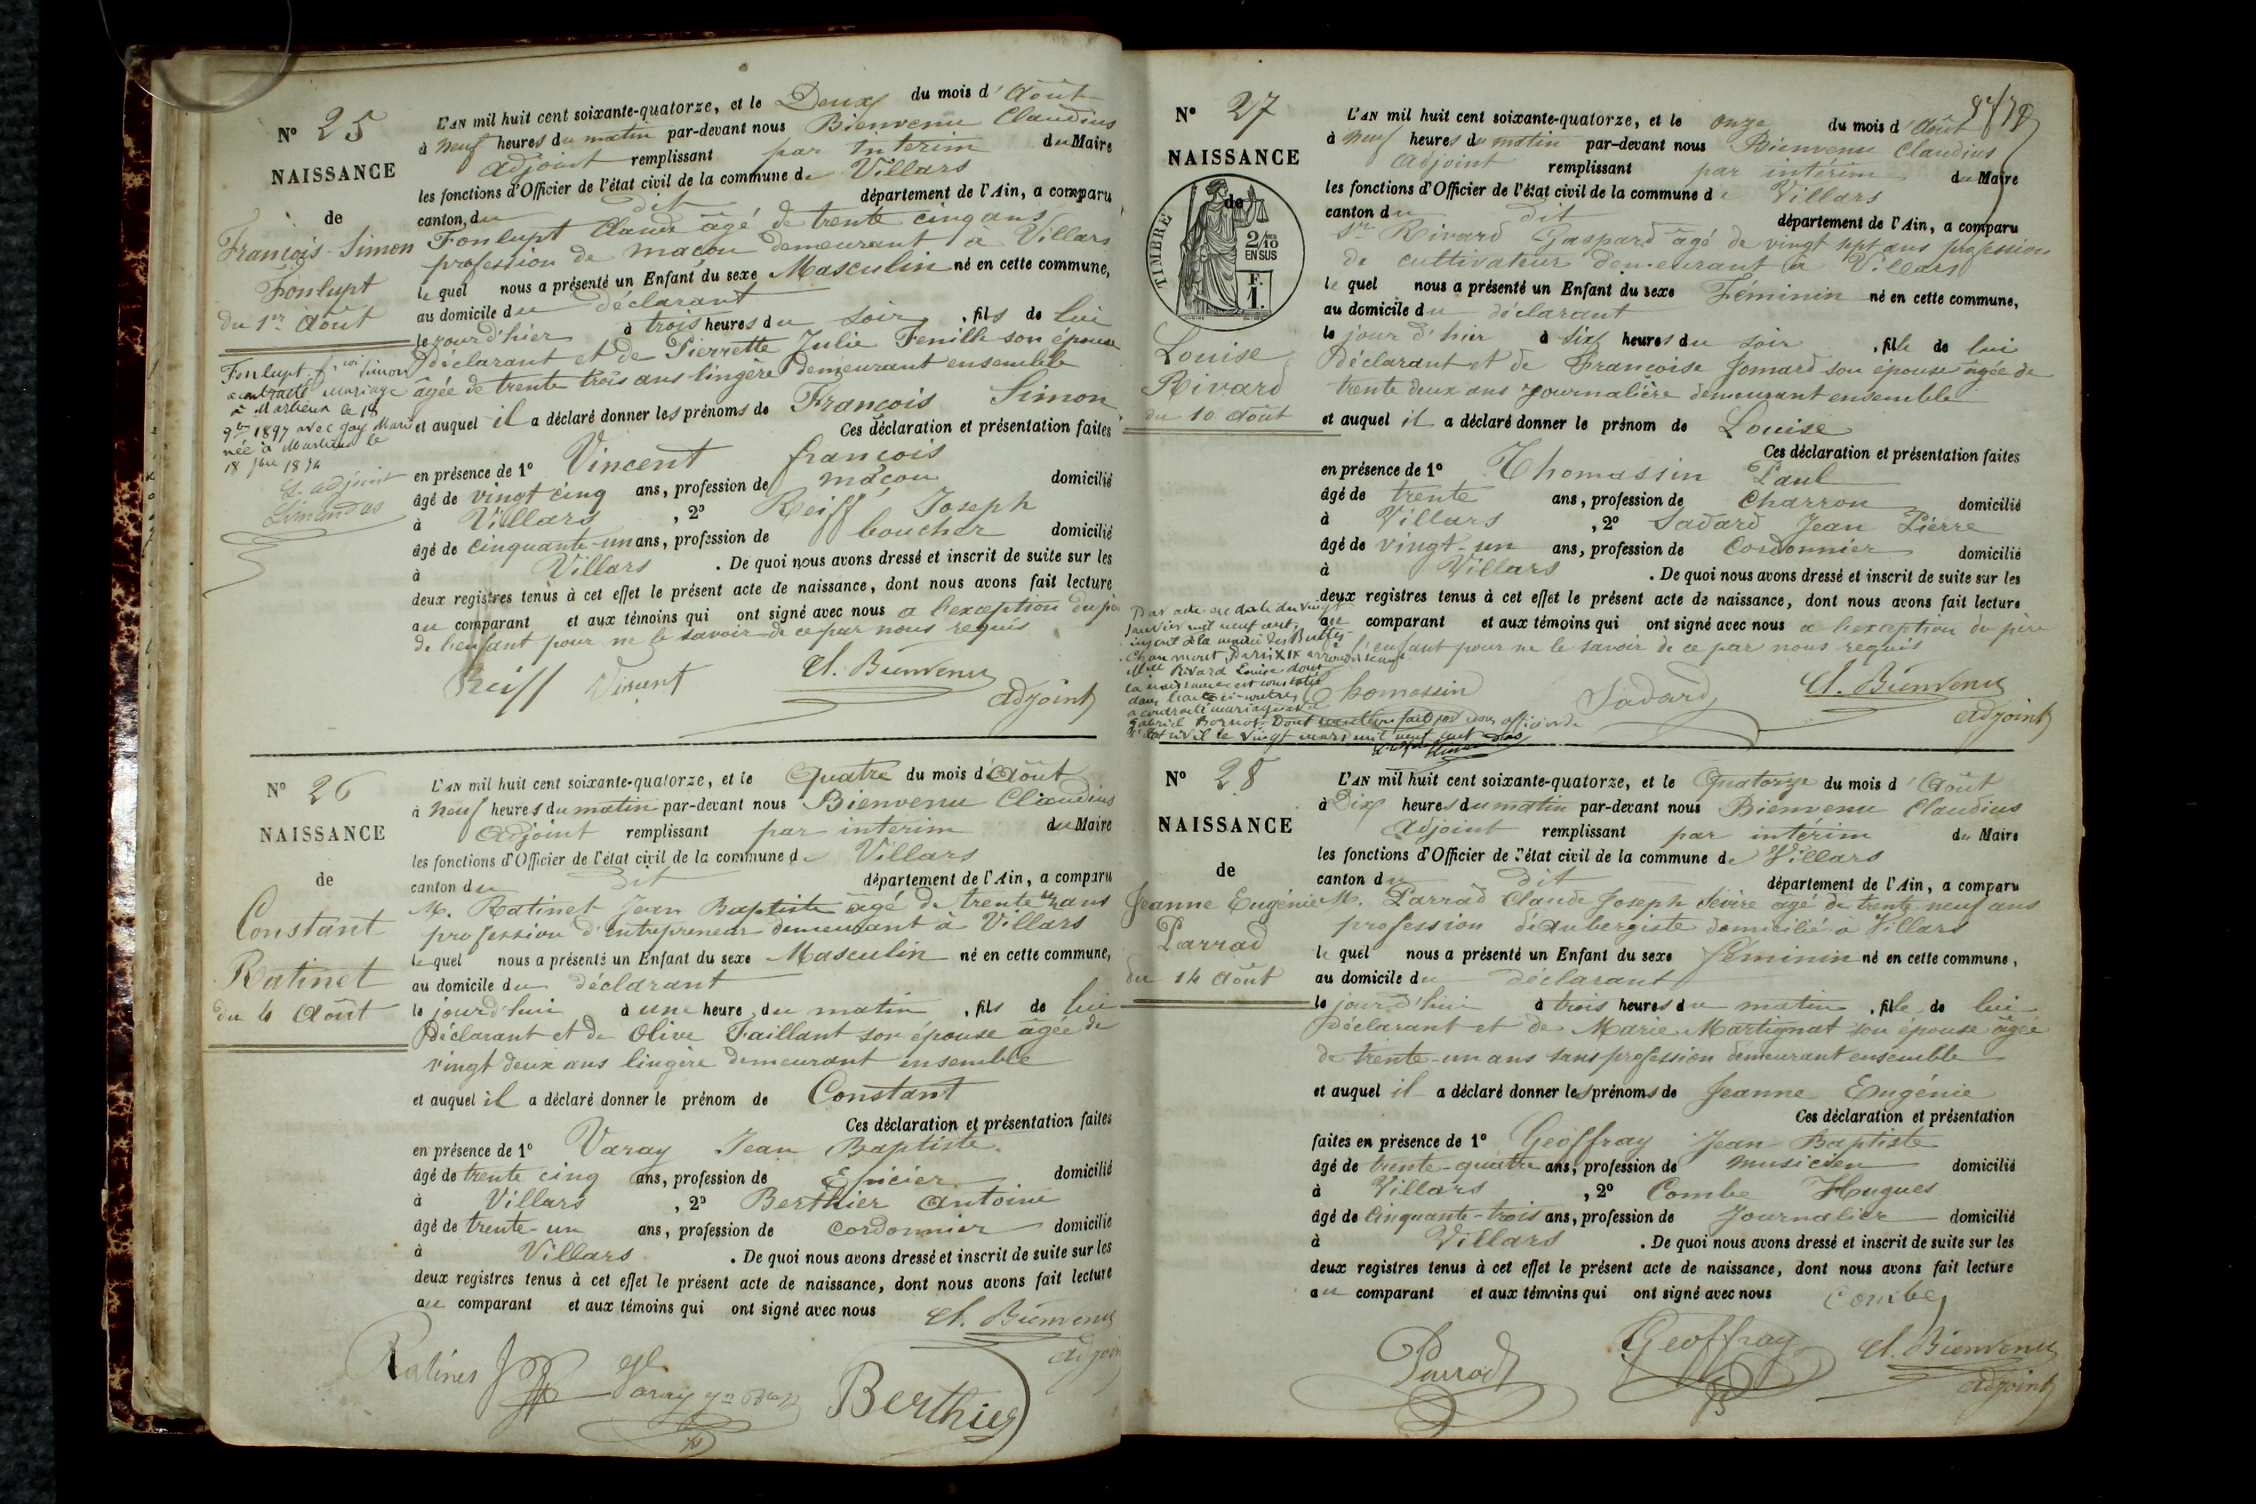 N° 25
NAISSANCE
de
François-Simon
Fonlupt
du 1er Août
Fonlupt fçois Simon
a contracté mariage
à Marlieux le 18
9bre 1897 avec Gay Marie
née à Marlieux le
18 1874
L'adjoint
L'AN mil huit cent soixante-quatorze, et le Deux du mois d'Août
à neuf heures du matin par-devant nous Bienvenu Claudius
adjoint remplissant par Interim du Maire
les fonctions d'Officier de l'état civil de la commune de Villars
canton du dit département de l'Ain, a comparu
Fonlupt Claude âgé de trente cinq ans
profession de maçon demeurant à Villars
le quel nous a présenté un Enfant du sexe Masculin né en cette commune,
au domicile du déclarant
le jour d'hier à trois heures du soir, fils de lui
Déclarant et de Pierrette Julie Fenille son épouse
âgée de trente trois ans lingère demeurant ensemble
et auquel il a déclaré donner les prénoms de François Simon
Ces déclaration et présentation faites
en présence de 1° Vincent françois
âgé de vingt cinq ans, profession de maçon domicilié
à Villars, 2° Reiff Joseph
âgé de cinquante-un ans, profession de boucher domicilié
à Villars. De quoi nous avons dressé et inscrit de suite sur les
deux registres tenus à cet effet le présent acte de naissance, dont nous avons fait lecture
au comparant et aux témoins qui ont signé avec nous a l'exception du père
de l'enfant pour ne le savoir de ce par nous requis
Reiff Vincent Cl. Bienvenu
adjoint
N° 26
NAISSANCE
de
Constant
Ratinet
du 4 Août
L'AN mil huit cent soixante-quatorze, et le Quatre du mois d'Août
à neuf heures du matin par-devant nous Bienvenu Claudius
Adjoint remplissant par interim du Maire
les fonctions d'Officier de l'état civil de la commune de Villars
canton du dit département de l'Ain, a comparu
M. Ratinet Jean Baptiste âgé de trente ans
profession d'entrepreneur demeurant à Villars
le quel nous a présenté un Enfant du sexe Masculin né en cette commune,
au domicile du déclarant
le jourd'hui à une heure du matin, fils de lui
Déclarant et de Olive Taillant son épouse âgée de
vingt deux ans lingère demeurant ensemble
et auquel il a déclaré donner le prénom de Constant
Ces déclaration et présentation faites
en présence de 1° Varay Jean Baptiste
âgé de trente cinq ans, profession de Epicier domicilié
à Villars, 2° Berthier Antoine
âgé de trente-un ans, profession de cordonnier domicilié
à Villars. De quoi nous avons dressé et inscrit de suite sur les
deux registres tenus à cet effet le présent acte de naissance, dont nous avons fait lecture
au comparant et aux témoins qui ont signé avec nous Cl. Bienvenu
adjoint
Ratinet Varay Berthier
N° 27
NAISSANCE
de
TIMBRE
2/10
EN SUS
F.
1.
Louise
Rivard
du 10 Août
L'AN mil huit cent soixante-quatorze, et le onze du mois d'Août
à neuf heures du matin par-devant nous Bienvenu Claudius
Adjoint remplissant par intérim du Maire
les fonctions d'Officier de l'état civil de la commune de Villars
canton du dit département de l'Ain, a comparu
Sr Rivard Gaspard âgé de vingt sept ans profession
de cultivateur demeurant à Villars
le quel nous a présenté un Enfant du sexe Féminin né en cette commune,
au domicile du déclarant
le jour d'hier à six heures du soir, fille de lui
Déclarant et de Françoise Jomard son épouse âgée de
trente deux ans journalière demeurant ensemble
et auquel il a déclaré donner le prénom de Louise
Ces déclaration et présentation faites
en présence de 1° Thomassin Paul
âgé de trente ans, profession de Charron domicilié
à Villars, 2° Sadard Jean Pierre
âgé de vingt-un ans, profession de Cordonnier domicilié
à Villars. De quoi nous avons dressé et inscrit de suite sur les
deux registres tenus à cet effet le présent acte de naissance, dont nous avons fait lecture
au comparant et aux témoins qui ont signé avec nous a l'exception du père
l'enfant pour ne le savoir de ce par nous requis
Par acte en date du vingt
janvier mil neuf cent
inscrit à la mairie des Buttes-
Chaumont, Paris XIX arrondissement
Rivard Louise dont
la naissance est constatée
dans l'acte ci-contre
a contracté mariage avec
Gabriel Dont mention faite par nous officier de
l'état civil le vingt mars mil neuf cent
Thomassin Sadard Cl. Bienvenu
adjoint
N° 28
NAISSANCE
de
Jeanne Eugénie
Parrad
du 14 Août
L'AN mil huit cent soixante-quatorze, et le Quatorze du mois d'Août
à Dix heures du matin par-devant nous Bienvenu Claudius
Adjoint remplissant par intérim du Maire
les fonctions d'Officier de l'état civil de la commune de Villars
canton du dit département de l'Ain, a comparu
M. Parrad Claude Joseph Sévère âgé de trente neuf ans
profession d'aubergiste domicilié à Villars
le quel nous a présenté un Enfant du sexe féminin né en cette commune,
au domicile du déclarant
le jourd'hui à trois heures du matin, fille de lui
Déclarant et de Marie Martignat son épouse âgée
de trente-un ans sans profession demeurant ensemble
et auquel il a déclaré donner les prénoms de Jeanne Eugénie
Ces déclaration et présentation
faites en présence de 1° Geoffray Jean Baptiste
âgé de trente-quatre ans, profession de musicien domicilié
à Villars, 2° Combe Hugues
âgé de Cinquante-trois ans, profession de Journalier domicilié
à Villars. De quoi nous avons dressé et inscrit de suite sur les
deux registres tenus à cet effet le présent acte de naissance, dont nous avons fait lecture
au comparant et aux témoins qui ont signé avec nous Combe
Parrad Geoffray Cl. Bienvenu
adjoint